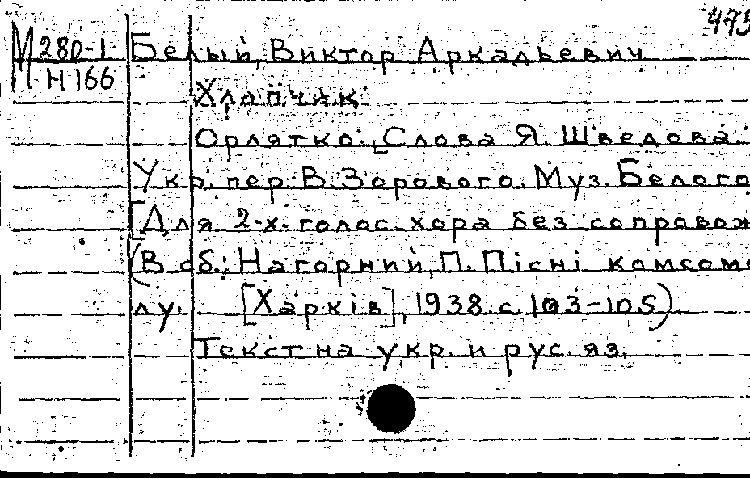 493
М 280-1 Белый, Виктор Аркадьевич
Н 166
Хлопчик.
Орлятко. Слова Я. Шведова.
Укр. пер. В. Зорового. Муз. Белого
[Для 2-х голос. хора без сопровож
(В сб.: Нагорний, П. Пісні комсомо
лу. [Харків], 1938 с. 103-105)
Текст на укр. и рус. яз.